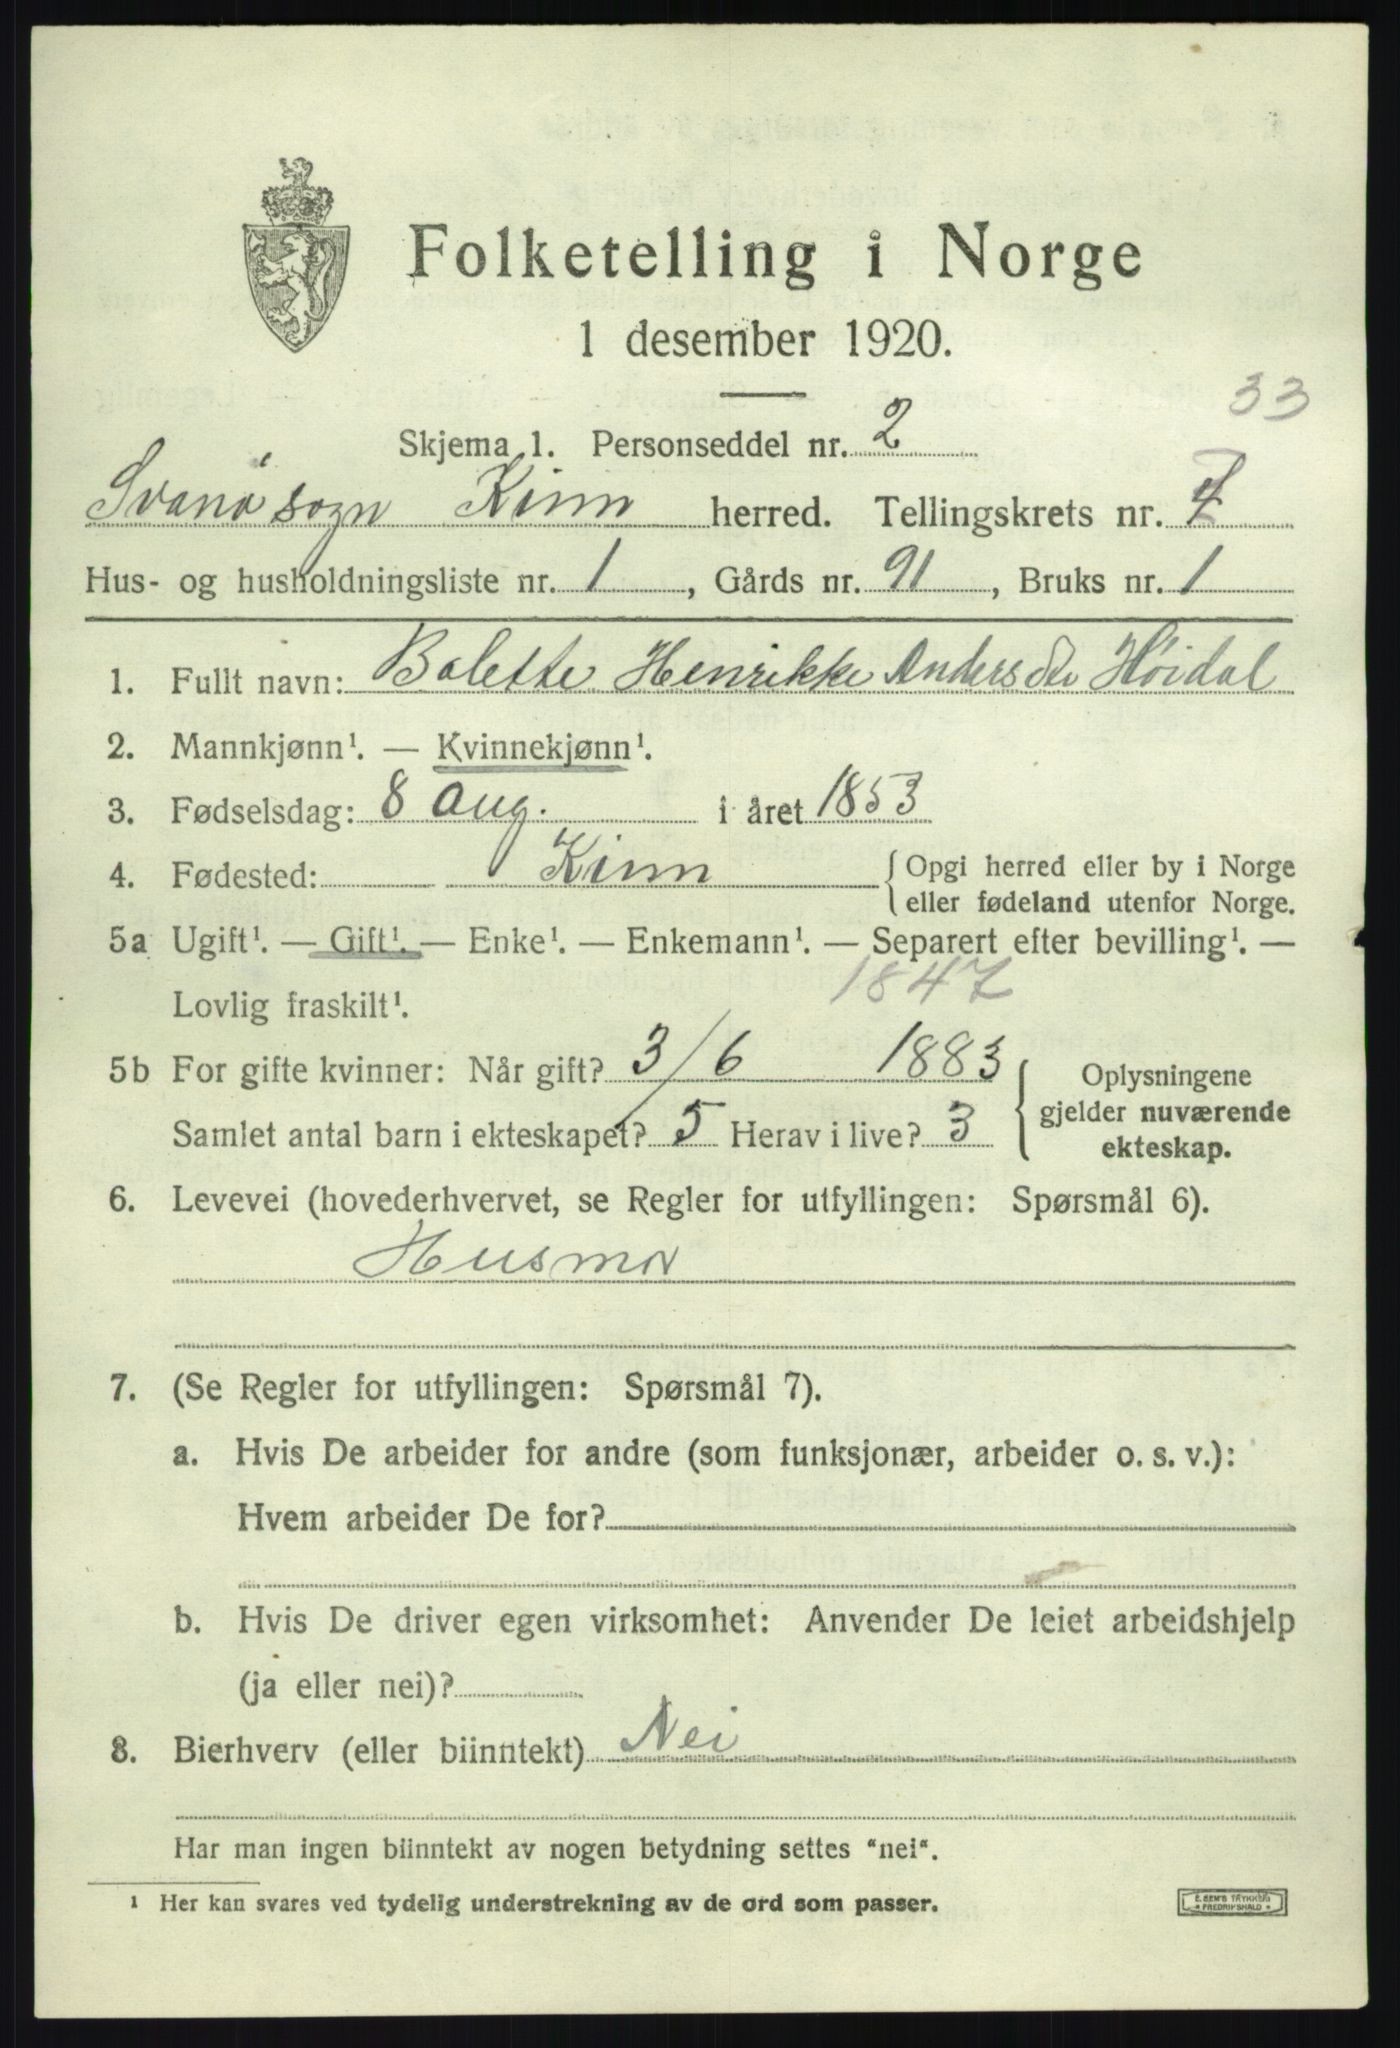 Folketelling i Norge
1 desember 1920.
33
Skjema 1. Personseddel nr. 2
Svanø sogn Kinn herred. Tellingskrets nr.
Hus- og husholdningsliste nr. 1, Gårds nr. 91, Bruks nr. 1
1. Fullt navn: Bolette Henrikke Andersdtr Høidal
2. Mannkjønn¹. — Kvinnekjønn¹.
3. Fødselsdag: 8 Aug. i året 1853
4. Fødested: Kinn { Opgi herred eller by i Norge
eller fødeland utenfor Norge.
5a Ugift¹. — Gift¹. — Enke¹. — Enkemann¹. — Separert efter bevilling¹. —
Lovlig fraskilt¹. 1847
5b For gifte kvinner: Når gift? 3/6 1883
Samlet antal barn i ekteskapet? 5 Herav i live? 3
{ Oplysningene
gjelder nuværende
ekteskap.
6. Levevei (hovederhvervet, se Regler for utfyllingen: Spørsmål 6).
Husmor
7. (Se Regler for utfyllingen: Spørsmål 7).
a. Hvis De arbeider for andre (som funksjonær, arbeider o. s. v.):
Hvem arbeider De for?
b. Hvis De driver egen virksomhet: Anvender De leiet arbeidshjelp
(ja eller nei)?
8. Bierhverv (eller biinntekt) Nei
Har man ingen biinntekt av nogen betydning settes "nei".
¹ Her kan svares ved tydelig understrekning av de ord som passer.
E. SEM'S TRYKKERI
* FREDRIKSHALD *